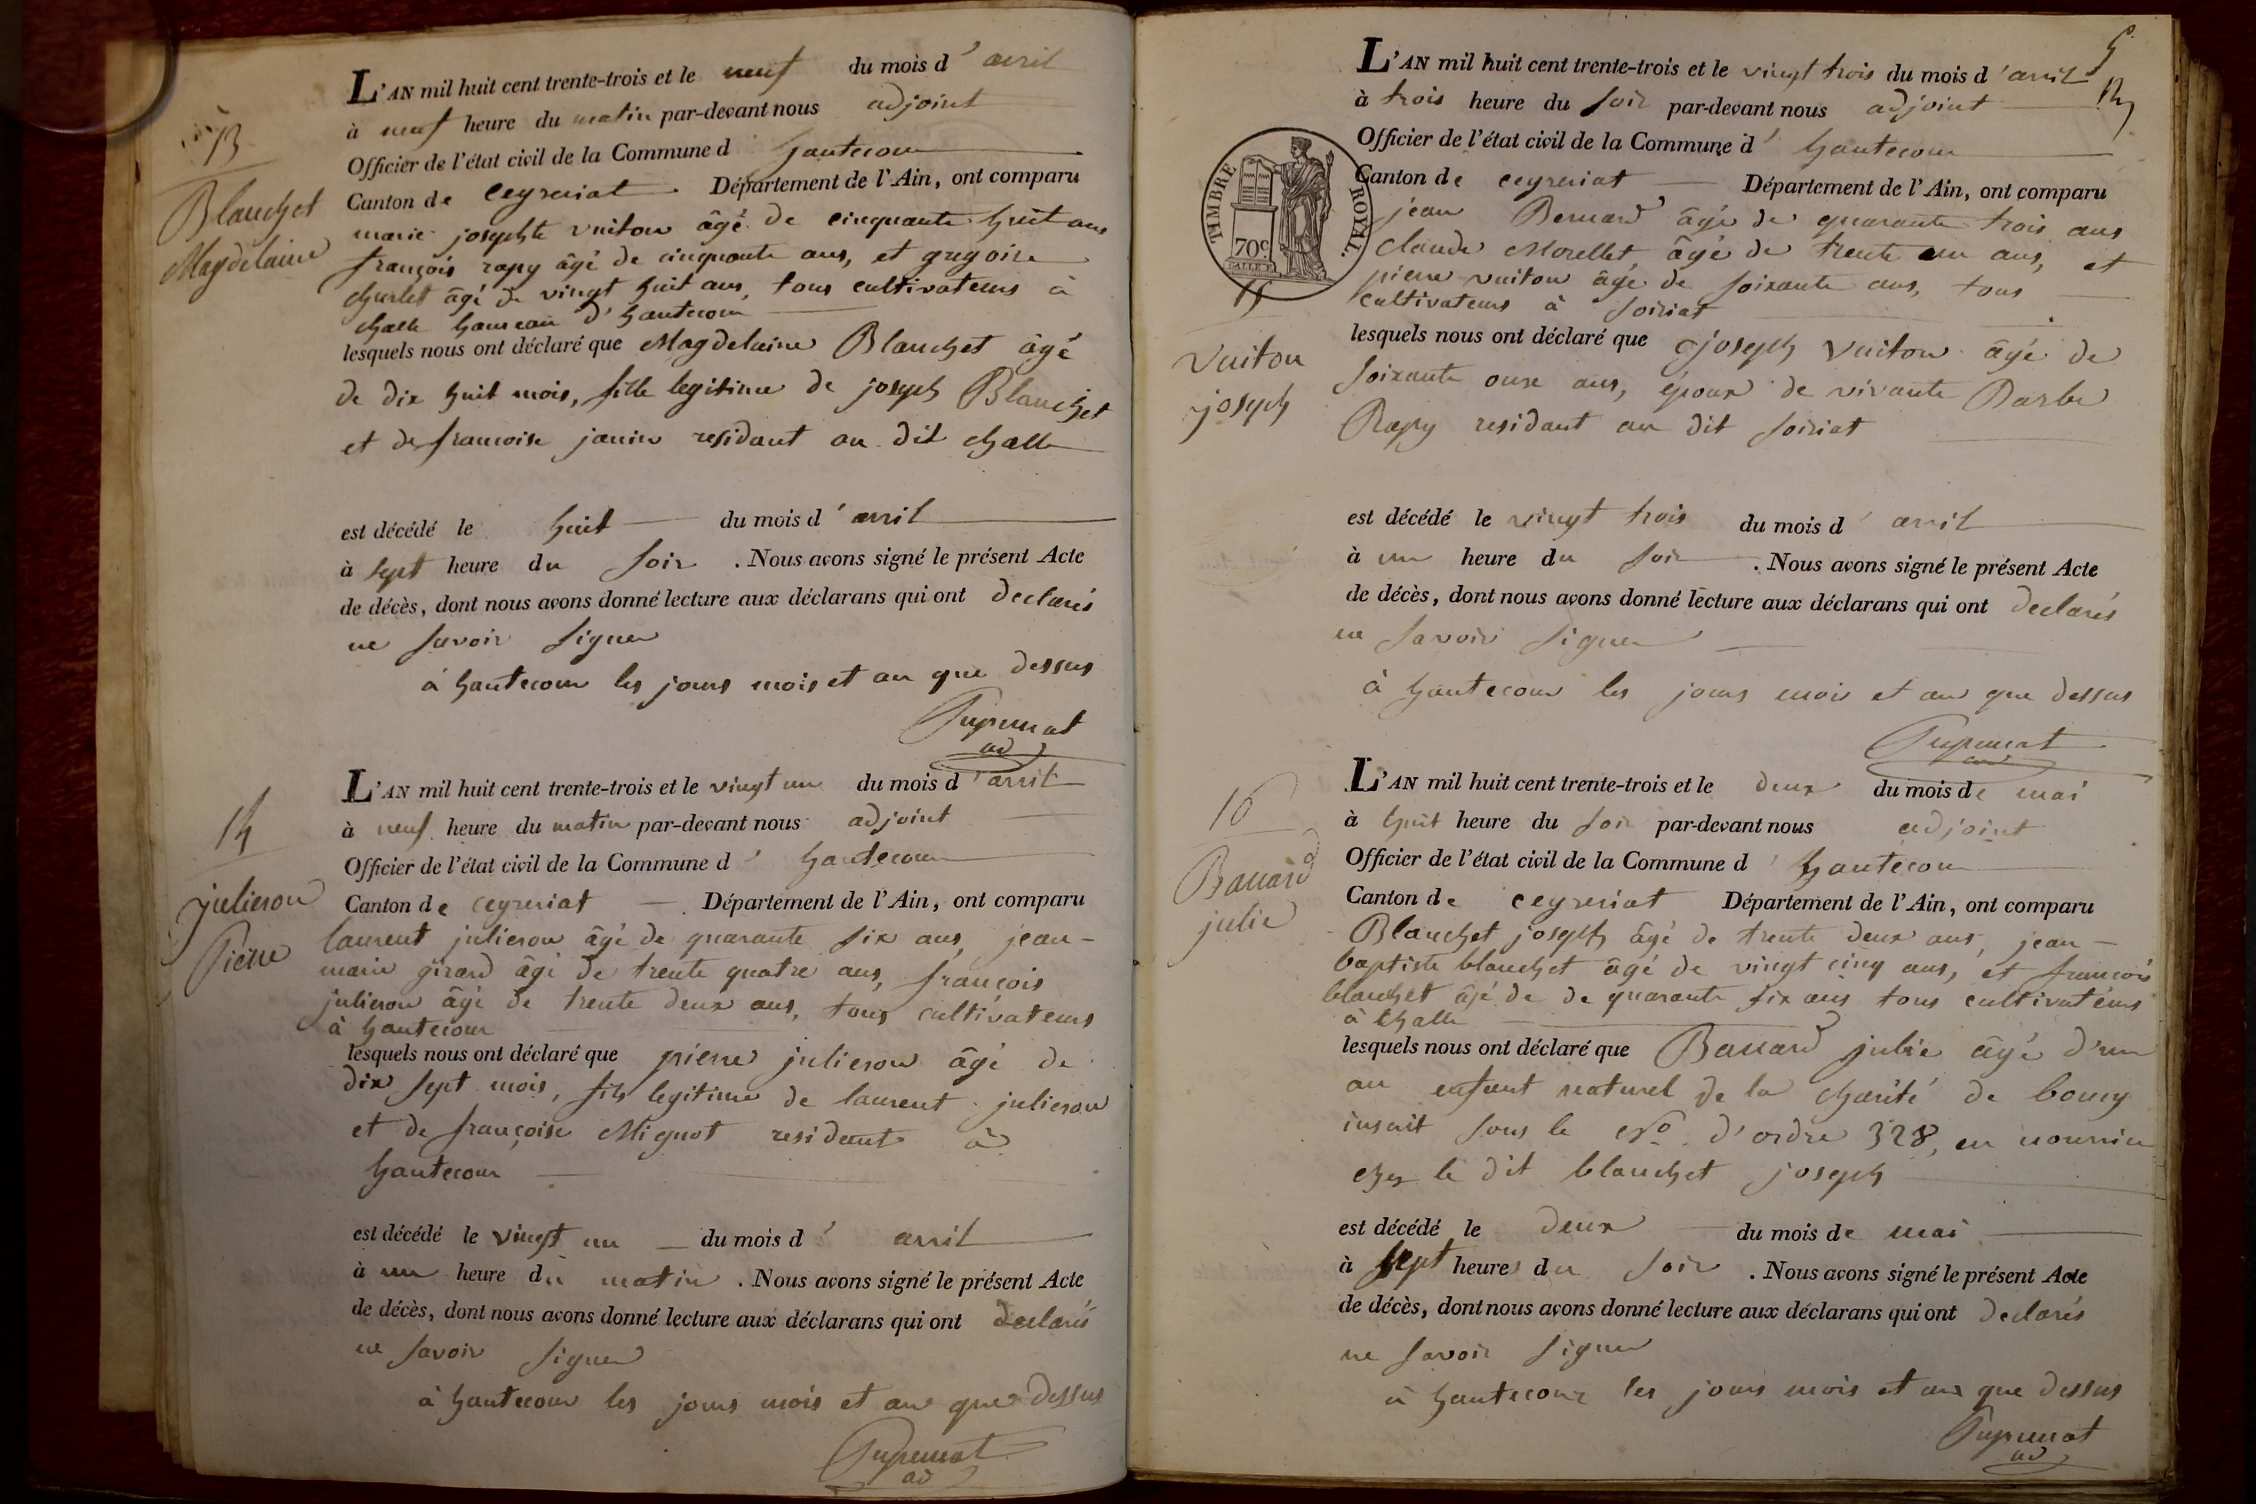 13
Blanchet
Magdelaine
L'AN mil huit cent trente-trois et le neuf du mois d'avril
à neuf heure du matin par-devant nous adjoint
Officier de l'état civil de la Commune d hautecour
Canton de ceyzeriat Département de l'Ain, ont comparu
marie josephte vuiton âgé de cinquante huit ans
françois rapy âgé de cinquante ans, et gregoire
churlet âgé de vingt huit ans, tous cultivateurs à
challe hameau d'hautecour
lesquels nous ont déclaré que Magdelaine Blanchet âgé
de dix huit mois, fille legitime de joseph Blanchet
et de francoise janin residant au dit challe
est décédé le huit du mois d'avril
à sept heure du soir . Nous avons signé le présent Acte
de décès, dont nous avons donné lecture aux déclarans qui ont declarés
ne savoir signer
à hautecour les jours mois et an que dessus
ad
14
julieron
Pierre
L'AN mil huit cent trente-trois et le vingt un du mois d'avril
à neuf heure du matin par-devant nous adjoint
Officier de l'état civil de la Commune d'hautecour
Canton de ceyzeriat Département de l'Ain, ont comparu
laurent julieron âgé de quarante six ans, jean-
marie girard âgé de trente quatre ans, françois
julieron âgé de trente deux ans, tous cultivateurs
à hautecour
lesquels nous ont déclaré que pierre julieron âgé de
dix sept mois, fils legitime de laurent julieron
et de françoise Mignot residant à
hautecour
est décédé le vingt un du mois d'avril
à un heure du matin . Nous avons signé le présent Acte
de décès, dont nous avons donné lecture aux déclarans qui ont declarés
ne savoir signer
à hautecour les jours mois et an que dessus
ad
5
TIMBRE ROYAL.
70c
15
vuiton
joseph
L'AN mil huit cent trente-trois et le vingt trois du mois d'avril
à trois heure du soir par-devant nous adjoint
Officier de l'état civil de la Commune d'hautecour
Canton de ceyzeriat Département de l'Ain, ont comparu
jean Bernard âgé de quarante trois ans
claude Morellet âgé de trente un ans, et
pierre vuiton âgé de soixante ans, tous
cultivateurs à soiriat
lesquels nous ont déclaré que joseph vuiton âgé de
soixante onze ans, époux de vivante Barbe
Rapy residant au dit soiriat
est décédé le vingt trois du mois d'avril
à un heure du soir . Nous avons signé le présent Acte
de décès, dont nous avons donné lecture aux déclarans qui ont declarés
ne savoir signer
à hautecour les jours mois et an que dessus
16
julie
L'AN mil huit cent trente-trois et le deux du mois de mai
à huit heure du soir par-devant nous adjoint
Officier de l'état civil de la Commune d'hautecour
Canton de ceyzeriat Département de l'Ain, ont comparu
Blanchet joseph âgé de trente deux ans, jean-
baptiste blanchet âgé de vingt cinq ans, et françois
blanchet âgé de de quarante six ans tous cultivateurs
à challe
lesquels nous ont déclaré que julie âgé d'un
an enfant naturel de la charité de bourg
inscrit sous le No d'ordre 328, en nourrice
chez le dit blanchet joseph
est décédé le deux du mois de mai
à sept heures du soir . Nous avons signé le présent Acte
de décès, dont nous avons donné lecture aux déclarans qui ont declarés
ne savoir signer
à hautecour les jours mois et an que dessus
ad